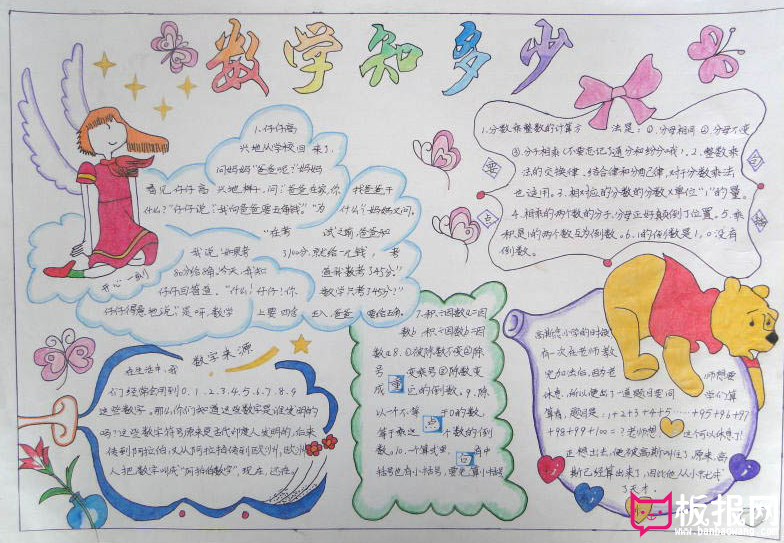 数学知多少
1.仔仔高
兴地从学校回来了,
问妈妈"爸爸呢?"妈妈
看见仔仔高兴地样子,问"爸爸在家,你找爸爸干
什么?"仔仔说:"我向爸爸要五角钱。""为什么?"妈妈又问。
"在考试之前,爸爸和
我说,如果考了100分,就给一元钱,考
80分给8角,今天,我和
数学只考345分?"
仔仔得意地说:"是呀,数学
上要四舍五入,爸爸
开心一刻
1.分数乘整数的计算方法是:①.分母相同②.分母不变
③分子相乘(不要忘记了通分和约分哦!).2.整数乘
法的交换律、结合律和分配律,对于分数乘法
也适用。3.相对应的分数的分数×单位"1"的量。
4.相乘的两个数的分子,分母正好颠倒了位置。5.乘
积是1的两个数互为倒数。6.1的倒数是1,0没有
倒数。
数字来源
在生活中,我
们经常会用到0、1、2、3、4、5、6、7、8、9
这些数字。那么你们知道这些数字是谁发明的
吗?这些数字符号原来是古代印度人发明的,后来
传到阿拉伯,又从阿拉伯传到欧洲,欧洲
人把数字叫成"阿拉伯数字",现在,还在
7.积÷因数a=因
数b 积÷因数b=因
数a 8.①被除数不变②除
号变乘号③除数变
成它的倒数。9.除
以一个不等于0的数,
等于乘这个数的倒
数。10.一个算式里,有中
括号也有小括号,要先算小括号
重
点
高斯念小学的时候
有一次在老师教
完加法后,因为老师想要
休息,所以便出了一道题目要同学们算
算看,题目是:1+2+3+4+5……+95+96+97
+98+99+100=?老师想,这下可以休息了
正想出去,便被高斯叫住了,原来,高
斯已经算出来了,因此他从小就
了天才。
板报网
www.banbaowang.com